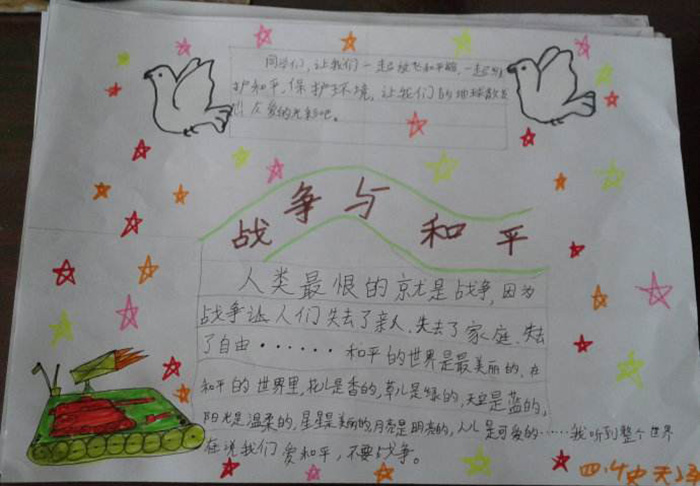 同学们，让我们一起放飞和平鸽，一起
护和平，保护环境，让我们的地球散发
出友爱的光彩吧。
战争与和平
人类最恨的就是战争，因为
战争让人们失去了亲人，失去了家庭，失去
了自由······和平的世界是最美丽的，在
和平的世界里，花儿是香的，草儿是绿的，天空是蓝的，
阳光是温柔的，星星是美丽的，月亮是明亮的，人儿是可爱的······我听到整个世界
在说我们爱和平，不要战争。
四.4史天